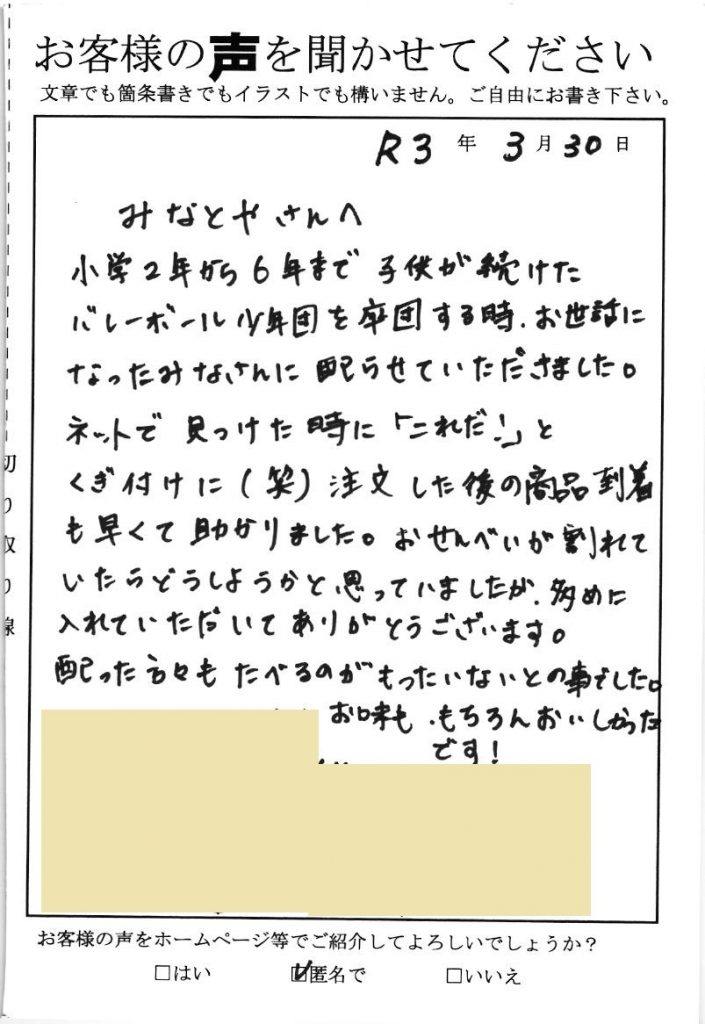 お客様の声を聞かせてください
文章でも箇条書きでもイラストでも構いません。ご自由にお書き下さい。
R3年 3月30日
みなとやさんへ
小学2年から6年まで子供が続けた
バレーボール少年団を卒団する時、お世話に
なったみなさんに配らせていただきました。
ネットで見つけた時に「これだ!」と
くぎ付けに(笑)注文した後の商品到着
も早くて助かりました。おせんべいが割れて
いたらどうしようかと思っていましたが、多めに
入れていただいてありがとうございます。
配った方々もたべるのがもったいないとの事でした。
お味も、もちろんおいしかった
です!
切り取り線
お客様の声をホームページ等でご紹介してよろしいでしょうか?
□はい ☑匿名で □いいえ